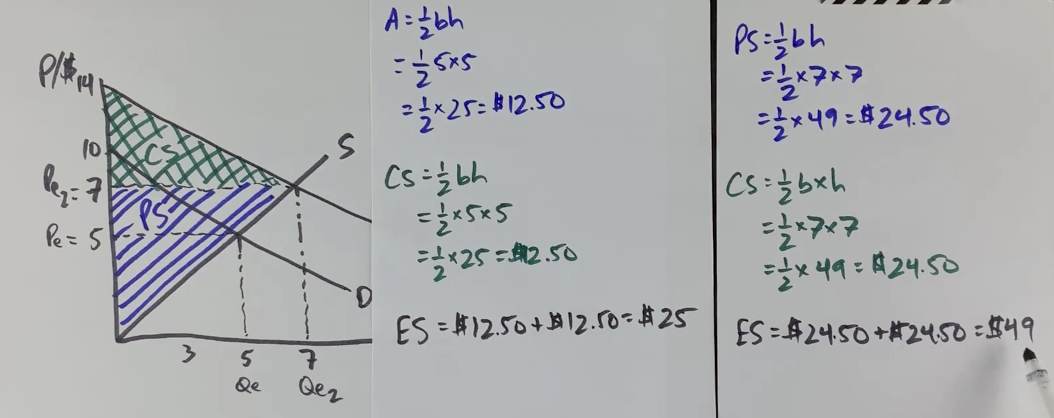 P/$ 14
10
Pe₂= 7
Pe = 5
CS
PS
S
D
3 5 7
Qe Qe₂
A = ½bh
= ½ 5×5
= ½ × 25 = $12.50
CS = ½bh
= ½ × 5 × 5
= ½ × 25 = $12.50
ES = $12.50 + $12.50 = $25
PS = ½bh
= ½ × 7 × 7
= ½ × 49 = $24.50
CS = ½ b × h
= ½ × 7 × 7
= ½ × 49 = $24.50
ES = $24.50 + $24.50 = $49